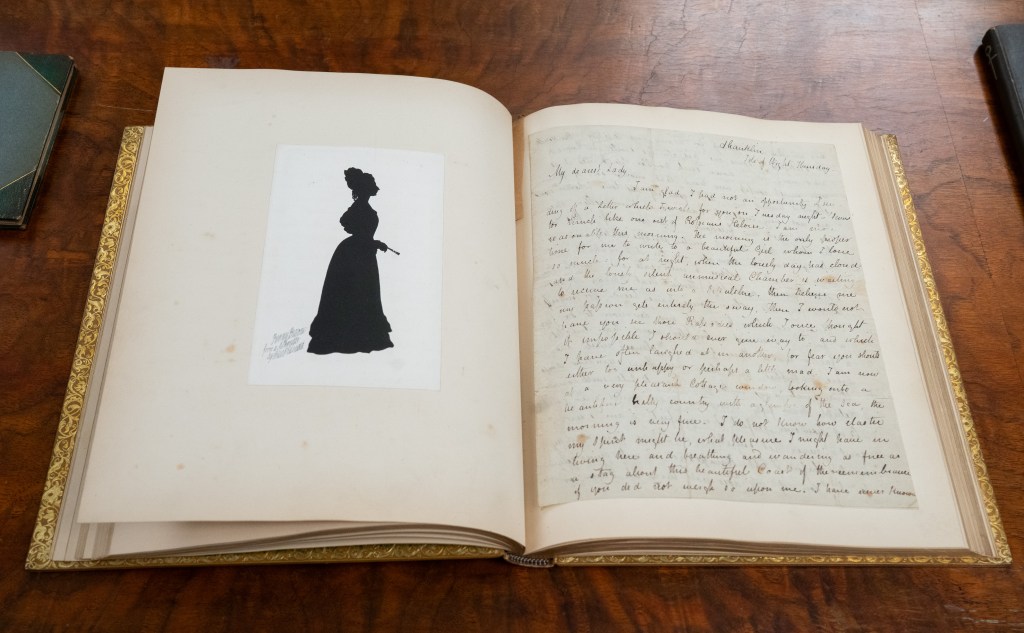 Shanklin
Isle of Wight, Thursday
My dearest Lady
I am glad I had not an opportunity of sen
ding off a Letter which I wrote for you on Tuesday night 'twas
too much like one out of Rousseau's Heloise. I am more
reasonable this morning. The morning is the only proper
time for me to write to a beautiful Girl whom I love
so much: for at night, when the lonely day has closed
and the lonely silent unmusical Chamber is waiting
to receive me as into a Sepulchre, then believe me
my passion gets entirely the sway, then I would not
have you see those which I once thought
it impossible I should ever give way to and which
I have often laughed at in another, for fear you should
either too unhappy or perhaps a little mad. I am now
at a very pleasant Cottage window looking onto a
beautiful hilly country with a of the sea the
morning is very fine. I do not know how elastic
my spirit might be, what pleasure I might have in
living here and breathing and wandering as free as
a stag about this beautiful Coast if the remembrance
of you did not weigh so upon me. I have never known